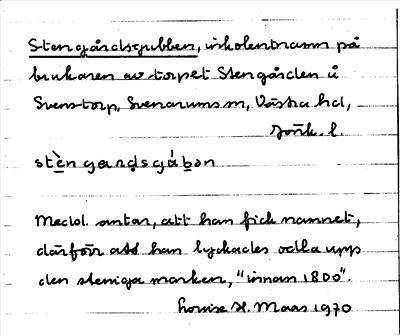 Stengårdsgubben, inkolentnamn på
brukaren av torpet Stengården å
Svenstorp, Svenarums sn, Västra hd,
Jönk. l.
stèngardsgúbən
Meddel. antar, att han fick namnet,
därför att han lyckades odla upp
den steniga marken, "innan 1800".
Louise H. Maas 1970